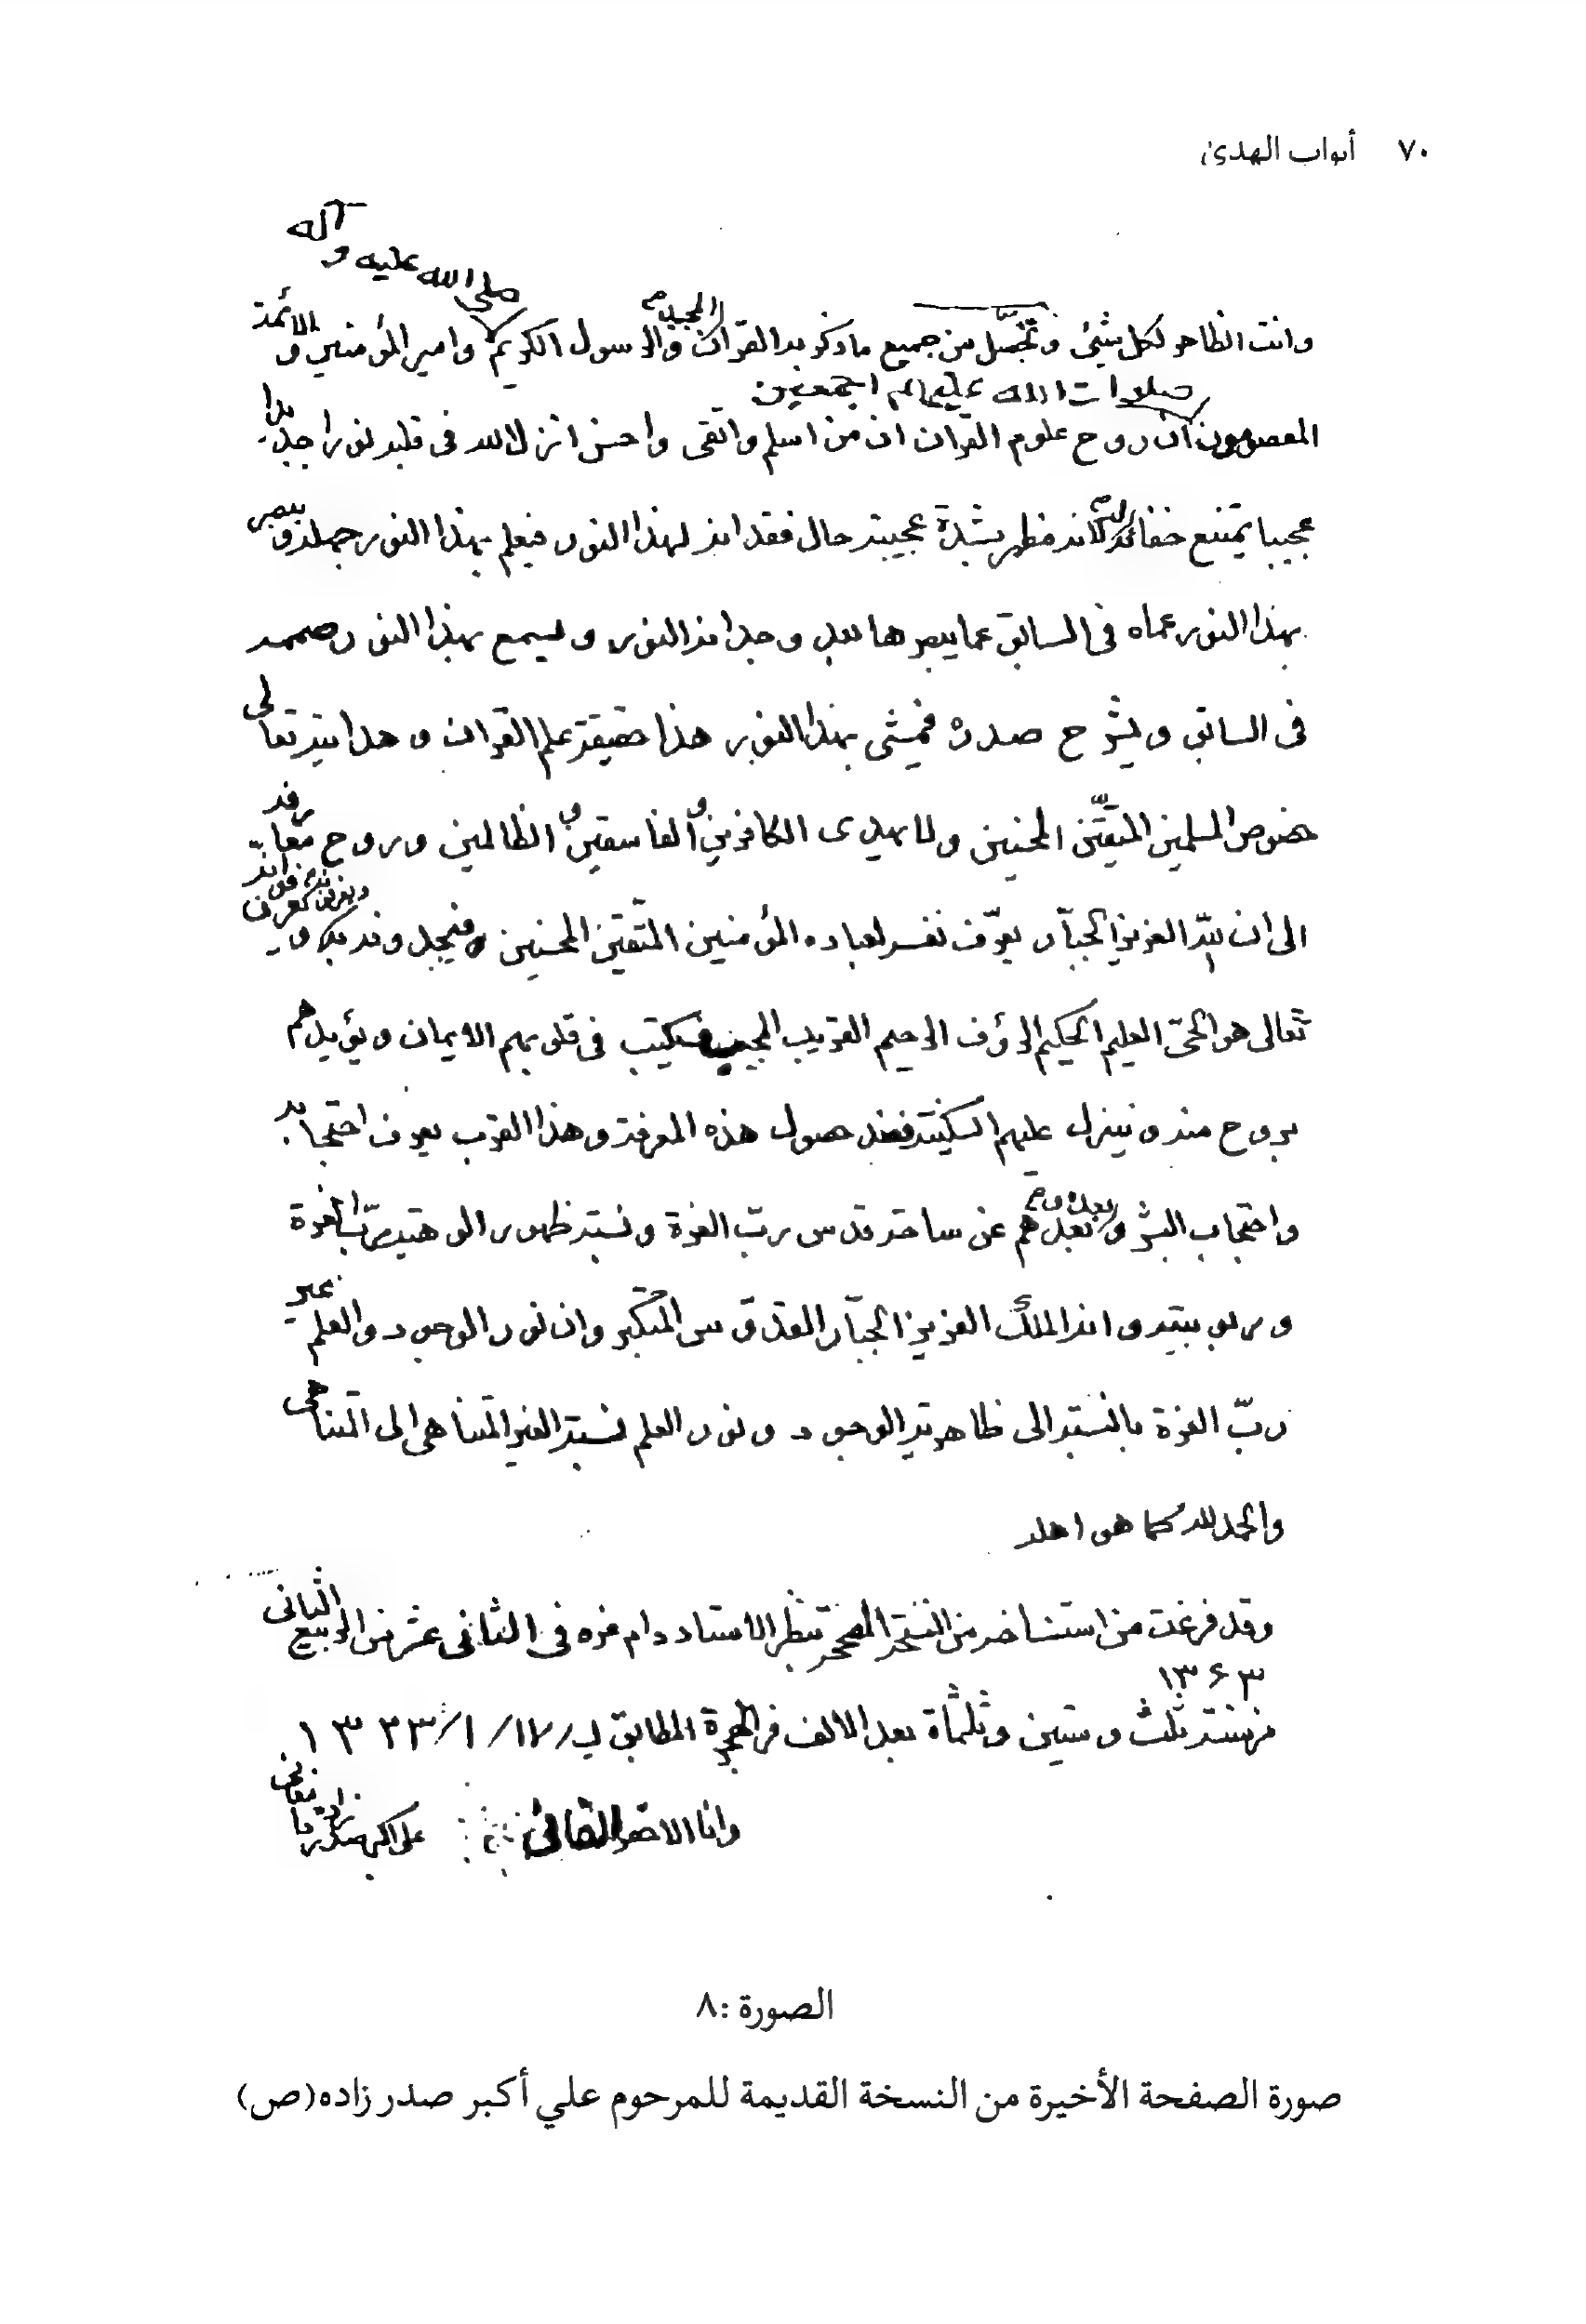 ٧٠ أبواب الهدى
وآله
صلى الله عليه
وانت الظاهر لكل شيئ وتحصّل من جميع ما ذكر به القرآن المجيد والرسول الكريم وامير المؤمنين والائمة
صلوات الله عليهم اجمعين
المعصومون ان روح علوم القرآن ان من اسلم واتقى واحسن انزل الله فى قلبه نورا جديدا
عجيبا يمتنع خفائه لانه فظهر بشدة عجيبة حال فقدانه لهذا النور فيعلم بهذا النور جهله ويبصر
بهذا النور عماه فى السابق عما يبصرها بعد وجدانه النور ويسمع بهذا النور صممه
فى السابق ويشرح صدره فيمشى بهذا النور هذا حقيقة علم القرآن وهدايته تعالى
خصوص المسلمين المتّقين المحسنين ولا يهدى الكافرين و الفاسقين و الظالمين وروح معارفه
الى ان الله العزيز الجبّار يعرّف نفسه لعباده المؤمنين المتّقين المحسنين فيجدونه انّه
تعالى هو الحىّ العليم الحكيم الرؤف الرحيم القريب المجيب فيكتب فى قلوبهم الايمان ويؤيدهم
بروح منه وينزل عليهم السكينة فعند حصول هذه المعرفة وهذا القرب يعرف احتجابه
واحتجاب البشر وبعده وبعدهم عن ساحة قدس ربّ العزة ونسبة ظهور الوهية ربّ العزة
وربوبيته وانه الملك العزيز الجبّار القدّوس المتكبّر وان نور الوجود والعلم غير
ربّ العزة بالنسبة الى ظاهرية الوجود ونور العلم نسبة الغير المتناهى الى المتناهى
والحمد لله كما هو اهله
وقد فرغت من استنساخه من النسخة المصححة بنظر الاستاد دام عزه فى الثانى عشر من الربيع الثانى
١٣۶٣
من سنة ثلث وستين وثلثمأة بعد الالف من الهجرة المطابق لـ ١٧/ ١/ ١٣٢٣
وانا الاحقر الفانى على اكبر صدرزاده
الصورة :٨
صورة الصفحة الأخيرة من النسخة القديمة للمرحوم علي أكبر صدر زاده(ص)